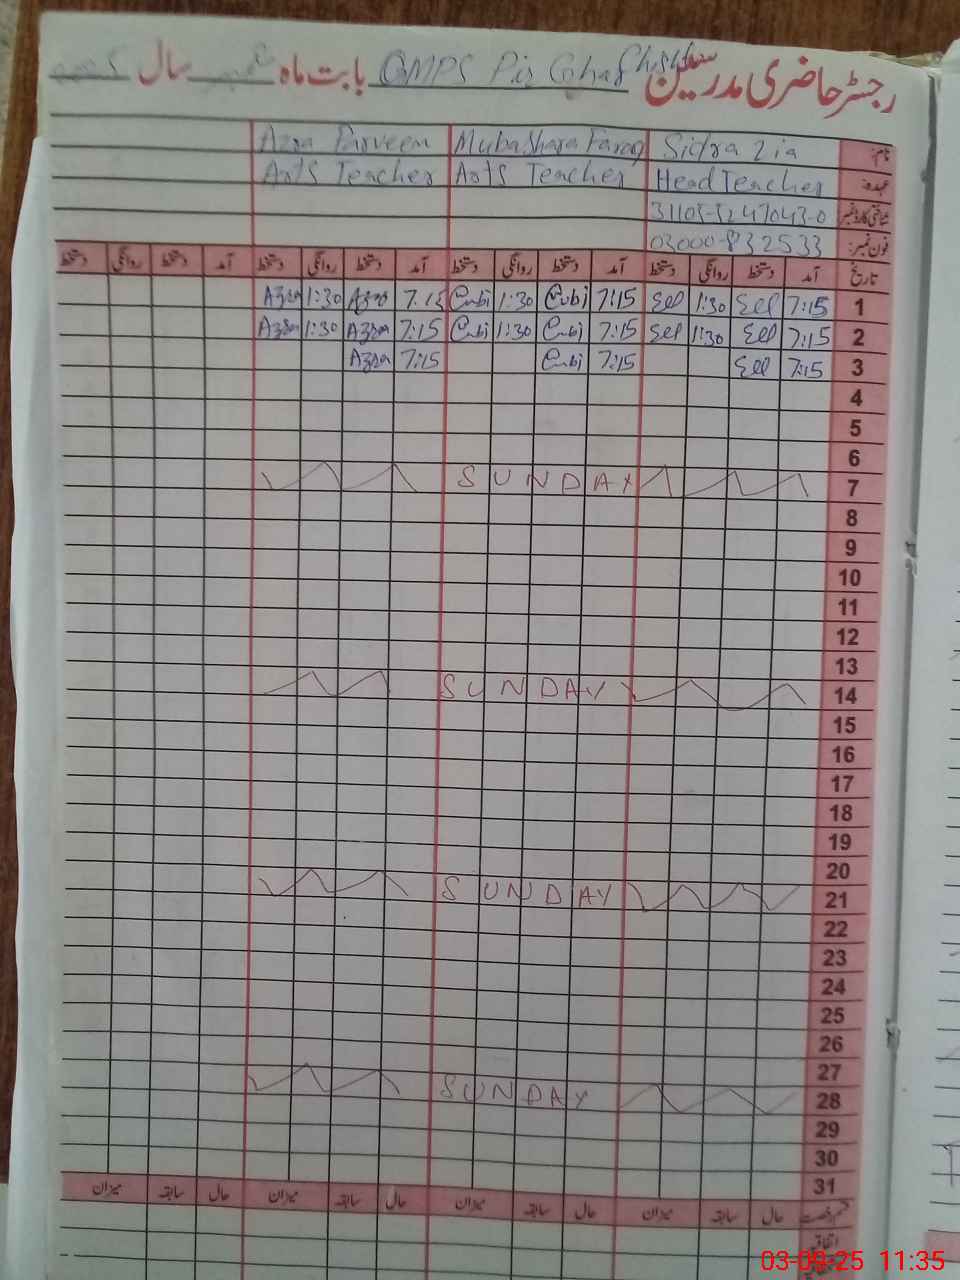 رجسٹر حاضری مدرسین GMPS Pir Ghar Chishti بابت ماہ ستمبر سال
نام: Sidra Zia Mubashara Farooq Azra Parveen
عہدہ: Head Teacher Arts Teacher Arts Teacher
شناختی کارڈ نمبر 31105-5247043-0
فون نمبر: 03000-832533
تاریخ آمد دستخط روانگی دستخط آمد دستخط روانگی دستخط آمد دستخط روانگی دستخط آمد دستخط روانگی دستخط
1 7:15 1:30 7:15 1:30 7:15 Azra 1:30 Azra
2 7:15 1:30 7:15 1:30 7:15 Azra 1:30 Azra
3 7:15 7:15 7:15 Azra
4
5
6
7 SUNDAY
8
9
10
11
12
13
14 SUNDAY
15
16
17
18
19
20
21 SUNDAY
22
23
24
25
26
27
28 SUNDAY
29
30
31
قسم رخصت حال سابقہ میزان حال سابقہ میزان حال سابقہ میزان حال سابقہ میزان
اتفاقیہ
03-09-25 11:35